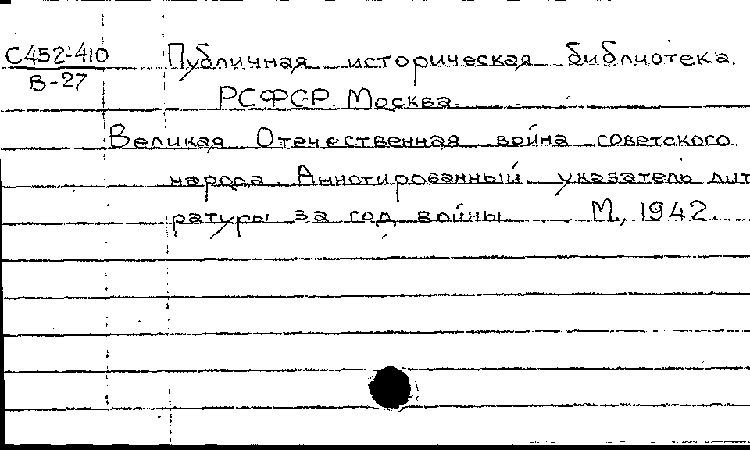 С452-410 Публичная историческая библиотека
В-27
РСФСР. Москва.
Великая Отечественная война советского
народа. Аннотированный указатель лит
ратуры за год войны. М., 1942.